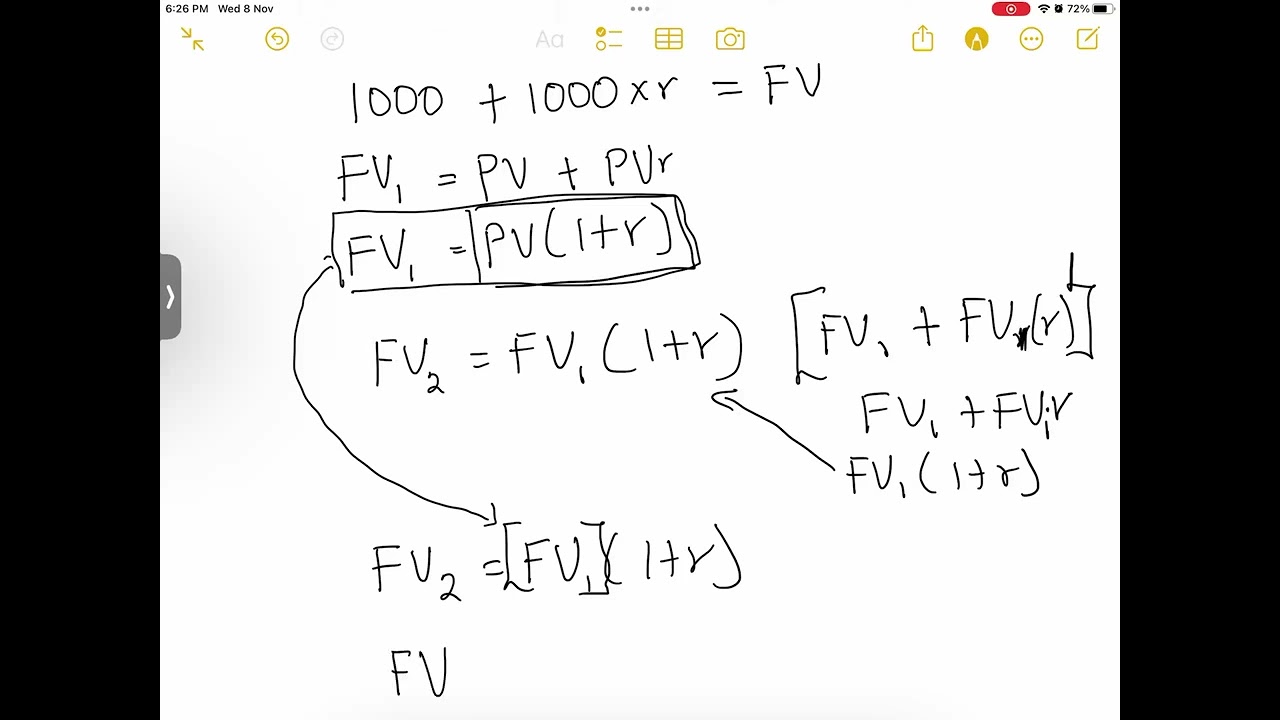 6:26 PM Wed 8 Nov 72%
Aa
1000 + 1000xr = FV
FV₁ = PV + PVr
FV₁ = PV(1+r)
FV₂ = FV₁(1+r) [FV₁ + FV₁(r)]
FV₁ + FV₁r
FV₁(1+r)
FV₂ = [FV₁](1+r)
FV